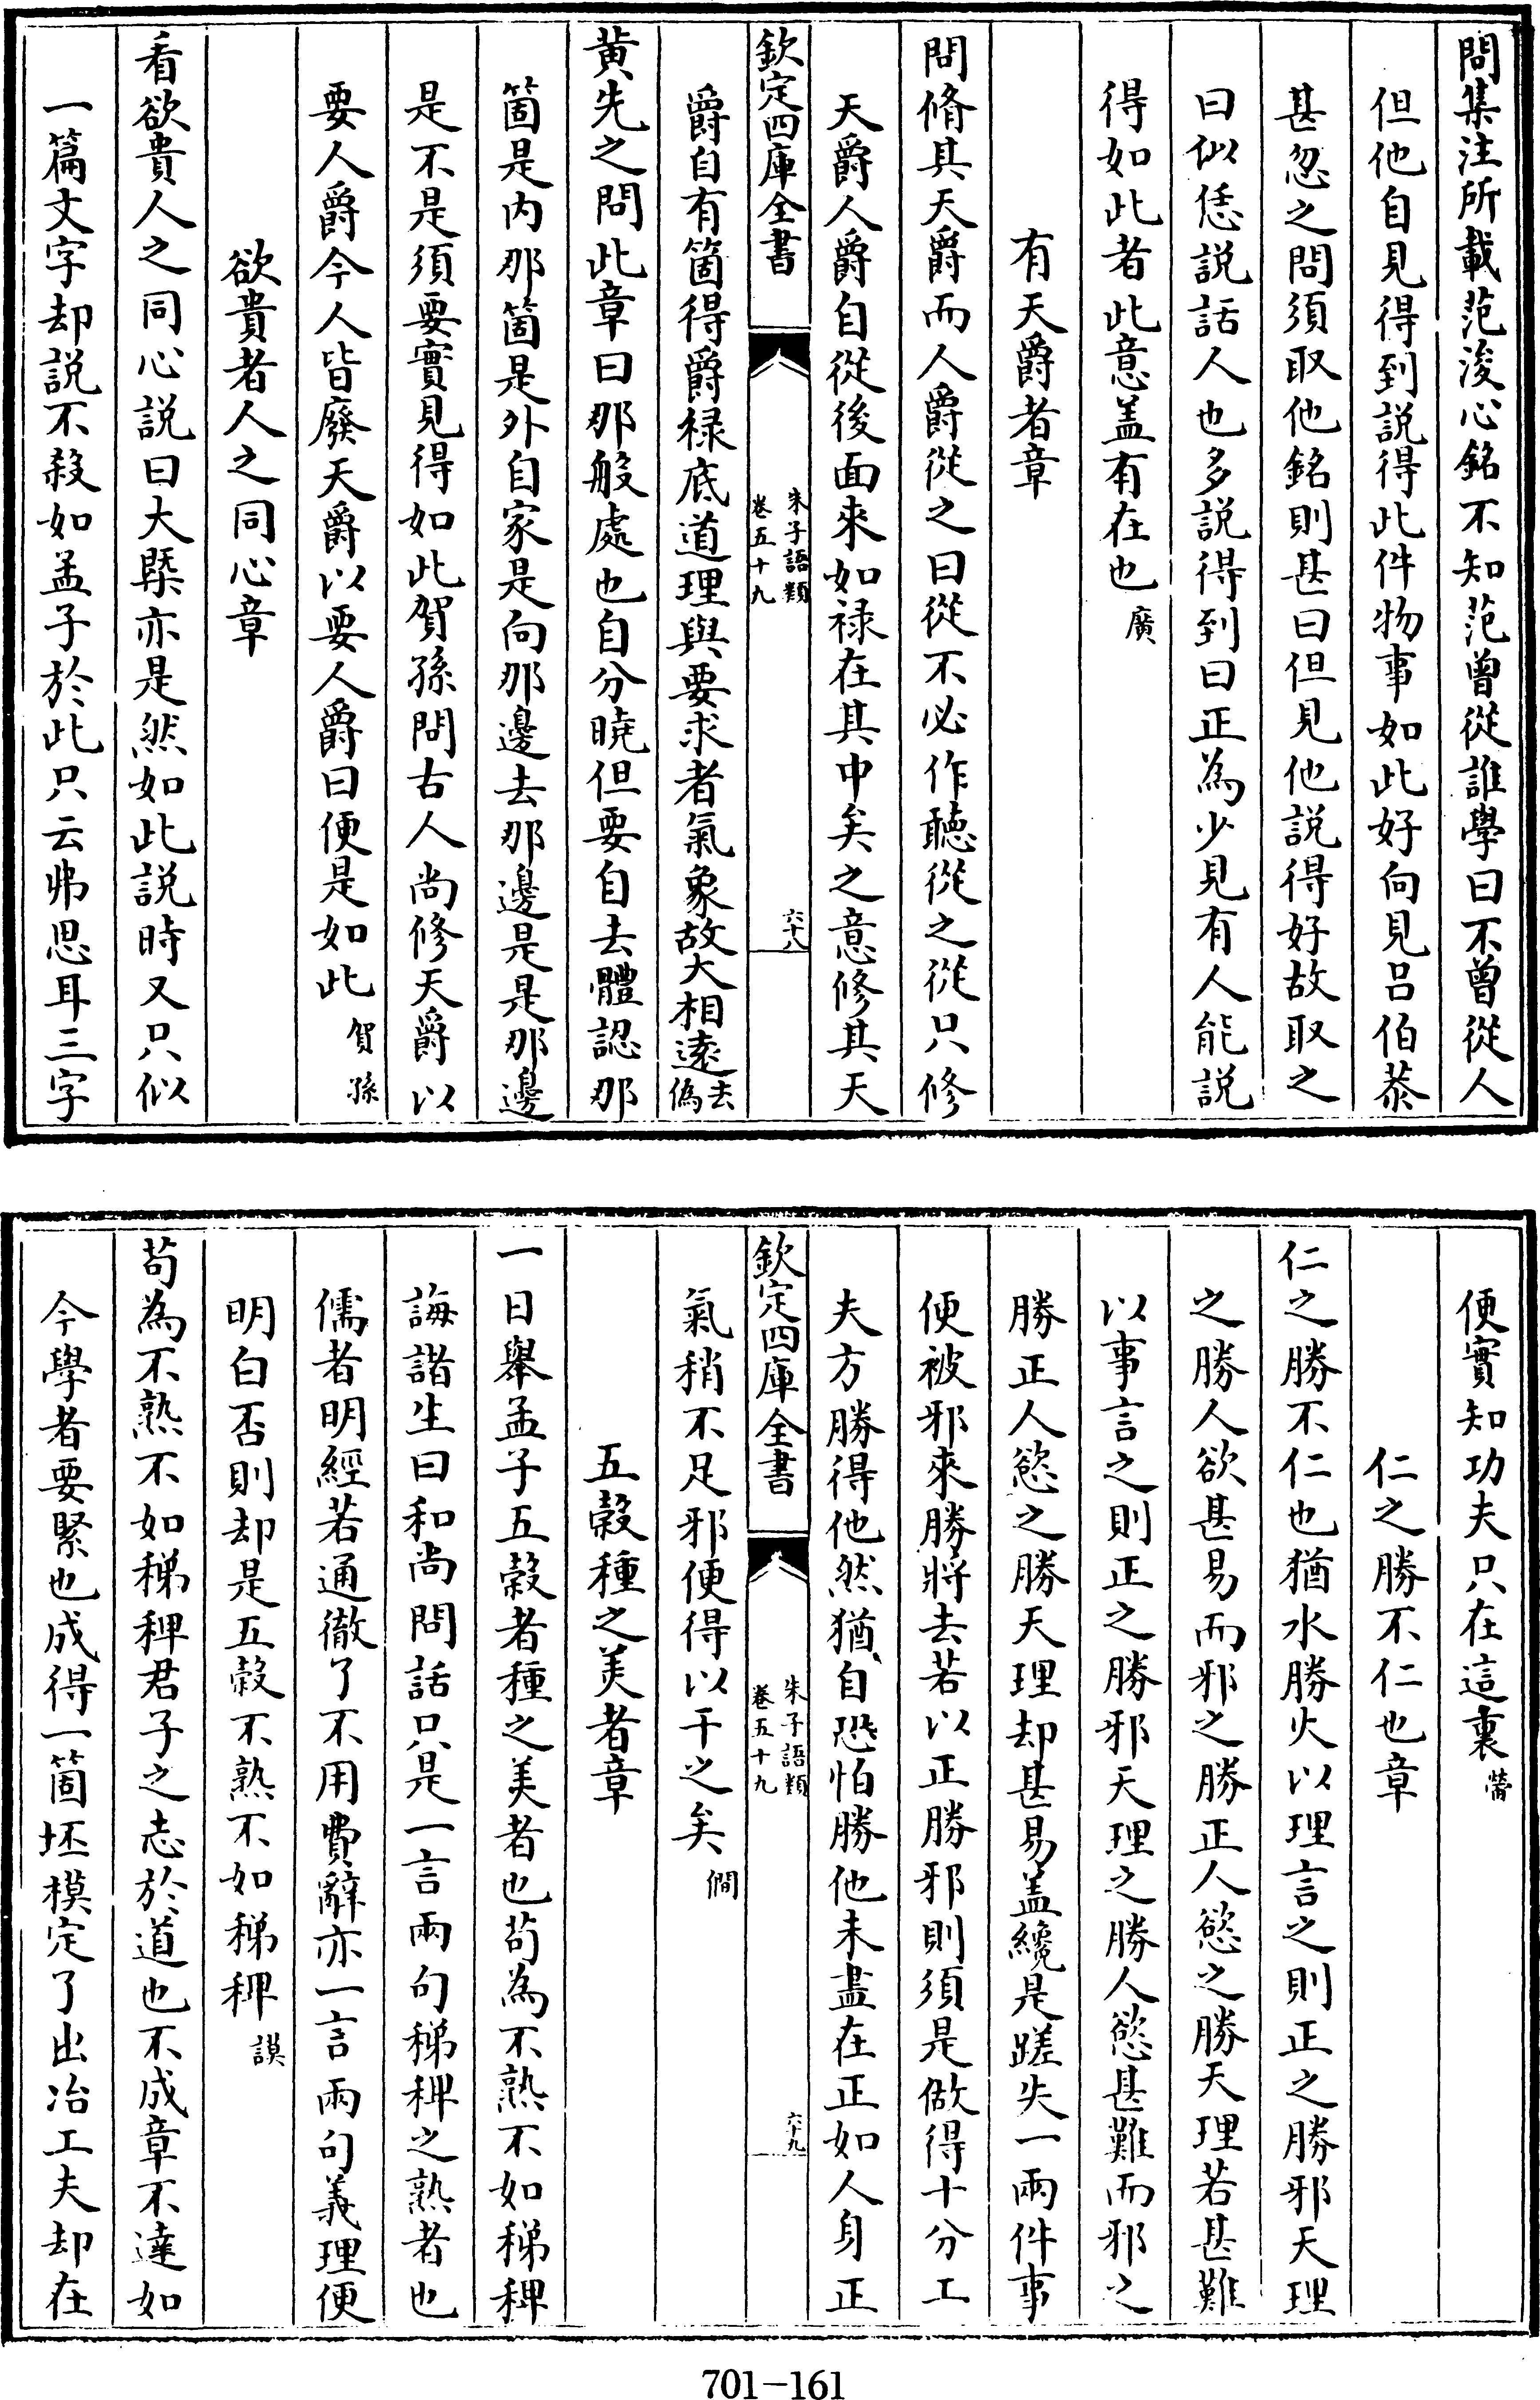 問集注所載范浚心銘不知范曾從誰學曰不曾從人
但他自見得到説得此件物事如此好向見吕伯恭
甚忽之問須取他銘則甚曰但見他説得好故取之
曰似恁説話人也多説得到曰正為少見有人能説
得如此者此意盖有在也廣
有天爵者章
問脩其天爵而人爵從之曰從不必作聽從之從只修
天爵人爵自從後面來如禄在其中矣之意修其天
欽定四庫全書
朱子語類
卷五十九
六十八
爵自有箇得爵禄底道理與要求者氣象故大相遠去偽
黄先之問此章曰那般處也自分曉但要自去體認那
箇是内那箇是外自家是向那邊去那邊是是那邊
是不是須要實見得如此賀孫問古人尚修天爵以
要人爵今人皆廢天爵以要人爵曰便是如此賀孫
欲貴者人之同心章
看欲貴人之同心説曰大槩亦是然如此説時又只似
一篇文字却説不殺如孟子於此只云弗思耳三字
便實知功夫只在這裏㽦
仁之勝不仁也章
仁之勝不仁也猶水勝火以理言之則正之勝邪天理
之勝人欲甚易而邪之勝正人慾之勝天理若甚難
以事言之則正之勝邪天理之勝人慾甚難而邪之
勝正人慾之勝天理却甚易盖纔是蹉失一兩件事
便被邪來勝將去若以正勝邪則須是做得十分工
夫方勝得他然猶自恐怕勝他未盡在正如人身正
欽定四庫全書
朱子語類
卷五十九
六十九
氣稍不足邪便得以干之矣僩
五穀種之美者章
一日舉孟子五穀者種之美者也苟為不熟不如稊稗
誨諸生曰和尚問話只是一言兩句稊稗之熟者也
儒者明經若通徹了不用費辭亦一言兩句義理便
明白否則却是五穀不熟不如稊稗謨
苟為不熟不如稊稗君子之志於道也不成章不達如
今學者要緊也成得一箇坯模定了出冶工夫却在
701-161